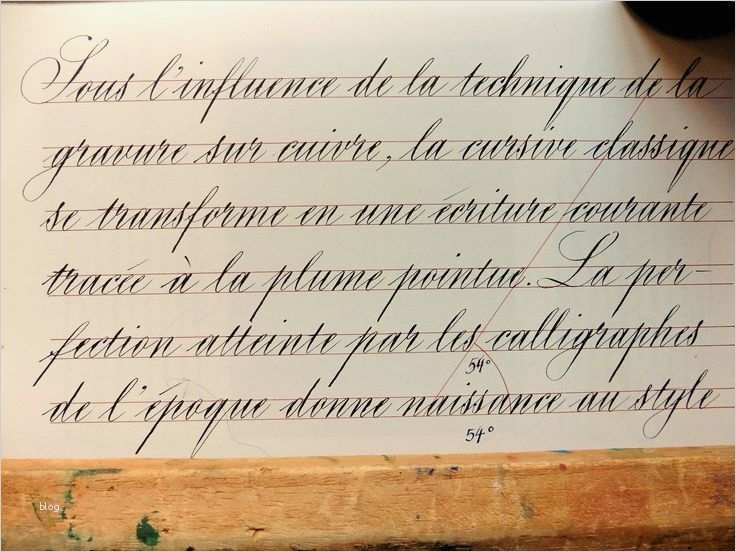 Sous l'influence de la technique de la
gravure sur cuivre, la cursive classique
se transforme en une écriture courante
tracée à la plume pointue. La per-
fection atteinte par les calligraphes
54°
de l'époque donne naissance au style
54°
blog.